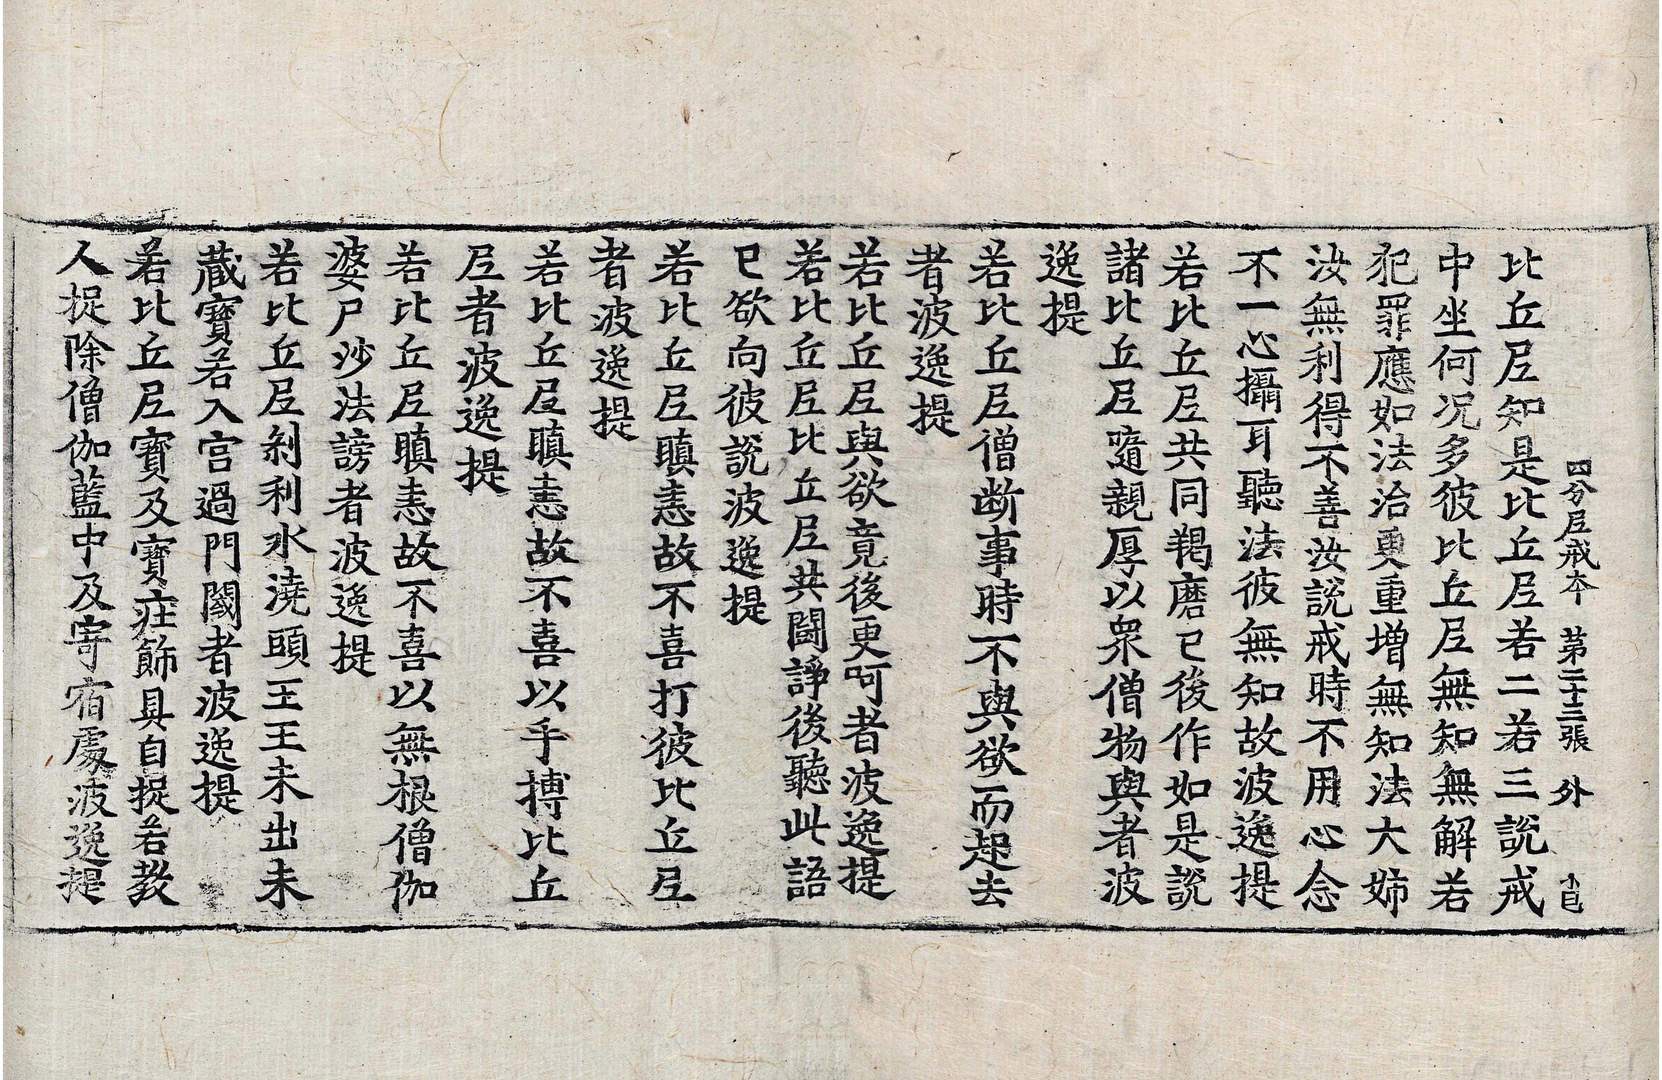 四分尼戒本　第二十三張　外　小邑
比丘尼知是比丘尼若二若三說戒
中坐何況多彼比丘尼無知無解若
犯罪應如法治更重增無知法大姉
汝無利得不善汝說戒時不用心念
不一心攝耳聽法彼無知故波逸提
若比丘尼共同羯磨已後作如是說
諸比丘尼隨親厚以衆僧物與者波
逸提
若比丘尼僧断事時不與欲而起去
者波逸提
若比丘尼與欲竟後更呵者波逸提
若比丘尼比丘尼共鬪諍後聽此語
已欲向彼說波逸提
若比丘尼瞋恚故不喜打彼比丘尼
者波逸提
若比丘尼瞋恚故不喜以手搏比丘
尼者波逸提
若比丘尼瞋恚故不喜以無根僧伽
婆尸沙法謗者波逸提
若比丘尼刹利水澆頭王王未出未
藏寶若入宮過門閾者波逸提
若比丘尼寶及寶莊飾具自捉若教
人捉除僧伽藍中及寄宿處波逸提